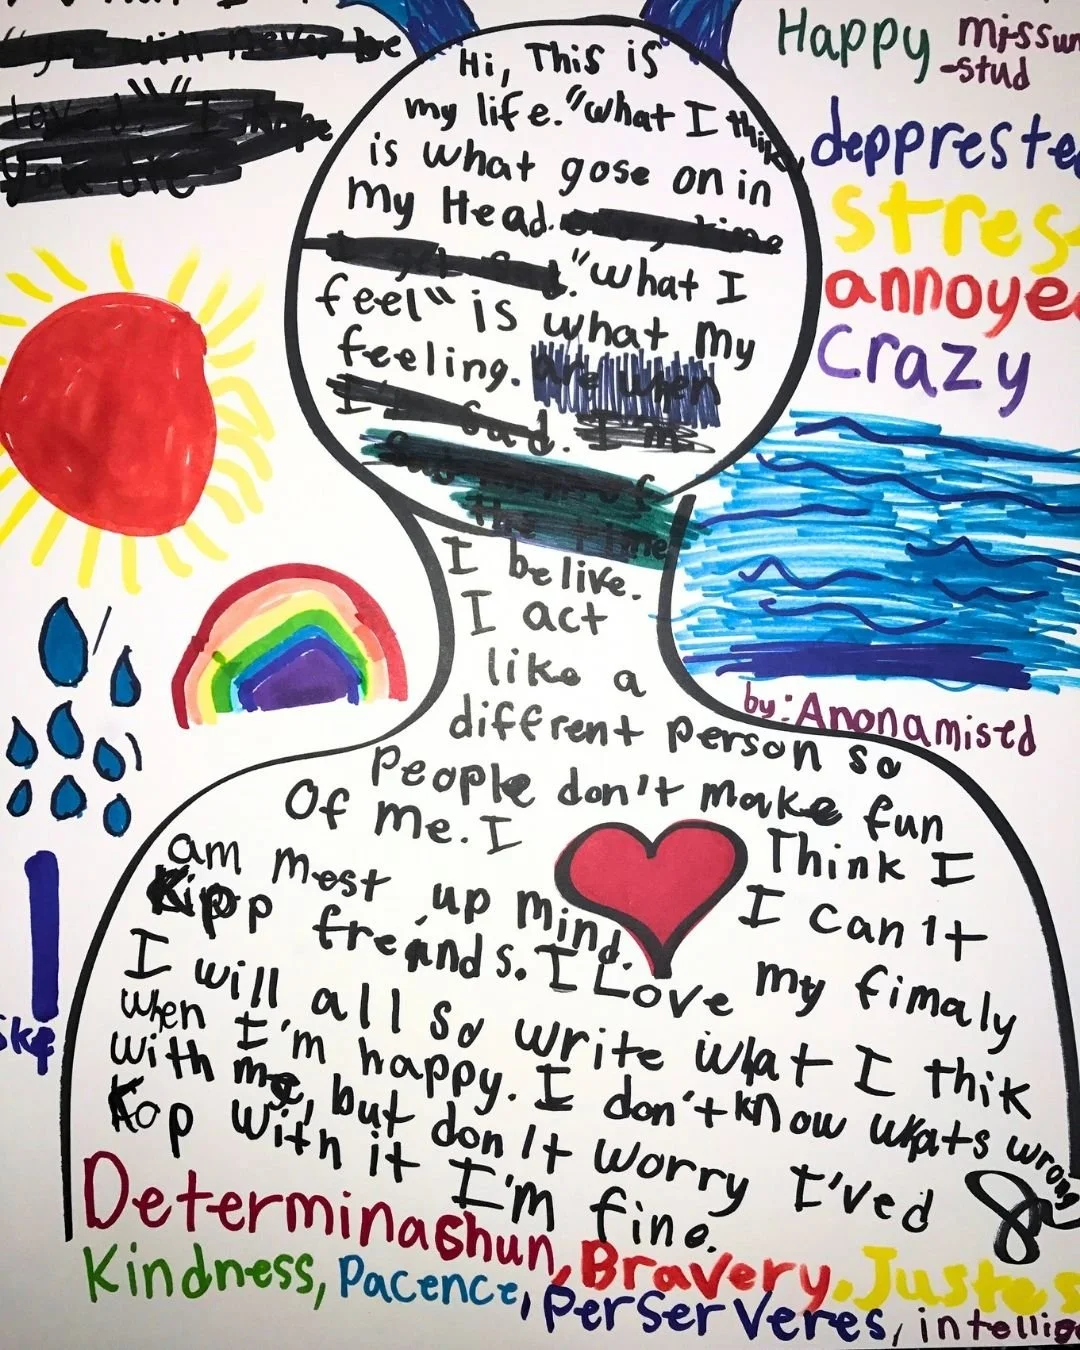 Hi, This is
my life. "what I think
is what gose on in
my Head.
"what I
feel" is what my
feeling.
I belive.
I act
like a
different person so
People don't make fun
Of me. I Think I
am mest up mind. I can't
Kipp freands. I Love my fimaly
I will all so write what I thik
when I'm happy. I don't know whats wrong
with me, but don't worry I'ved
Kop with it I'm fine.
Happy missun
-stud
deppreste
stres
annoye
crazy
by: Anonamised
ske
Determinashun, Bravery, Justes
Kindness, Pacence, perserveres, intellig